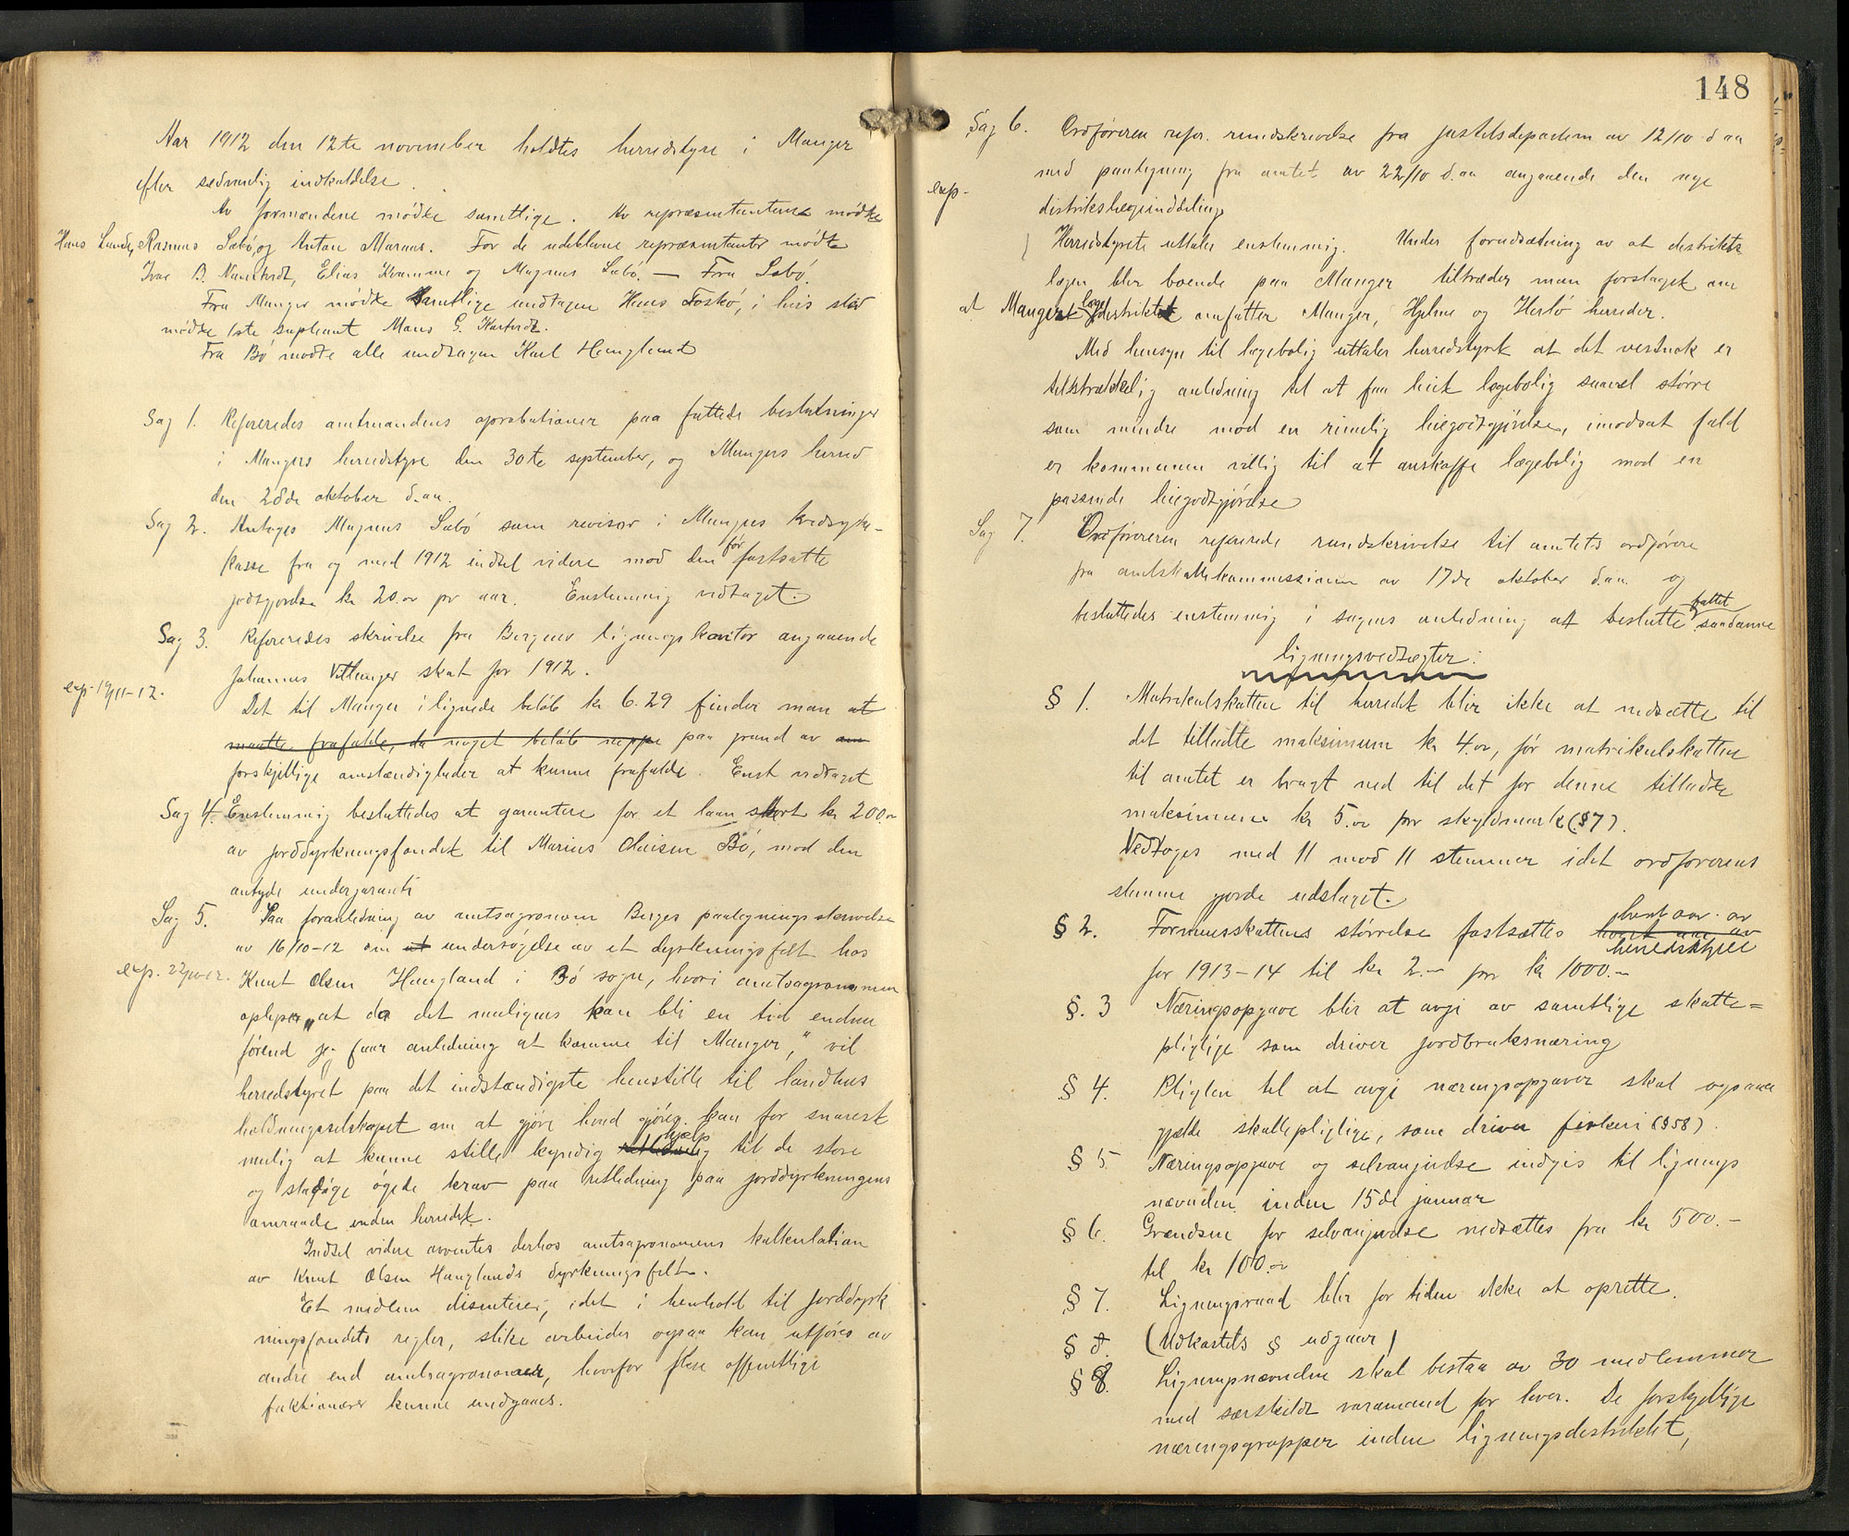 Aar 1912 den 12te november holdtes herredstyre i Manger
efter sedvanlig indkaldelse.
Av formændene mødte samtlige. Av repræsentanterne mødte
Hans Landøy, Rasmus Sæbø, og Antan Maraas. For de udeblevne repræsentanter mødte
Ivar B. Namtvedt, Elias Kvamme og Magnus Sæbø. — Fra Sæbø.
Fra Manger mødte samtlige undtagen Hans Toskø, i hvis sted
mødte 1ste supleant Mons G.
Fra Bø mødte alle undtagen Karl Haugland
Sag 1. Refereredes amtmandens aprobationer paa fattede beslutninger
i Mangers herredstyre den 30te september, og Mangers herred
den 28de oktober d.aa.
Sag 2. Antages Magnus Sæbø som revisor i Mangers kredsyke-
kasse fra og med 1912 indtil videre mod den før fastsatte
godtgjørelse kr 20.00 pr aar. Enstemmig vedtaget.
Sag 3. Refereredes skrivelse fra Bergens ligningskontor angaaende
Johannes Vetlanger skat for 1912.
exp. 19/11-12.
Det til Manger ilignede beløb kr 6.29 finder man at
maatte frafalde, da noget beløb neppe paa grund av
forskjellige omstændigheder at kunne frafalde. Enst vedtaget
Sag 4. Enstemmig besluttedes at garantere for et laan stort kr 200.00
av jorddyrkningsfondet til Marius Olaisen Bø, mod den
antyde undergaranti
Sag 5. Paa foranledning av amtsagronom Berges paategningsskrivelse
av 16/10-12 om at undersøgelse av et dyrkningsfelt hos
exp.
Knut Olsen Haugland i Bø sogn, hvori amtsagronomen
oplyser „at da det muligens kan bli en tid endnu
førend jeg faar anledning at komme til Manger," vil
herredstyret paa det indstændigste henstille til landhus
holdningsselskapet om at gjøre hvad gjøres kan for snarest
mulig at kunne stille kyndig hjælp til de store
og stadige øgede krav paa veiledning paa jorddyrkningens
omraade inden herredet.
Indtil videre avventes derhos amtsagronomens kalkulation
av Knut Olsen Hauglands dyrkningsfelt.
Et medlem disenterer, idet i henhold til jorddyrk
ningsfondets regler, slike arbeider ogsaa kan utføres av
andre end amtsagronomer, hvorfor flere offentlige
funktionærer kunne undgaaes.
148
Sag 6. Ordføreren refer. rundskrivelse fra justitsdepartem av 12/10 d aa
med paategning fra amtet av 22/10 d.aa angaaende den nye
exp.
distriktslægeinddeling
Herredstyrets uttaler enstemmig. Under forudsætning av at distrikts
lægen blir boende paa Manger tiltræder man forslaget om
at Mangers lægedistrikt omfatter Manger, Hjelme og Herlø herreder.
Med hensyn til lægebolig uttaler herredstyret at det vestnok er
tilstrækkelig anledning til at faa leiet lægebolig saavel større
som mindre mod en rimelig leiegodtgjørelse, imodsat fald
er kommunen villig til at anskaffe lægebolig mod en
passende leiegodtgjørelse
Sag 7. Ordføreren refererede rundskrivelse til amtets ordførere
fra amtskattekommissionen av 17de oktober d.aa. og
besluttedes enstemmig i sagens anledning at beslutte fattet saadanne
ligningsvedtægter:
§ 1. Matrikulskatten til herredet blir ikke at nedsætte til
det tilladte maksimum kr 4.00, før matrikulskatten
til amtet er bragt ned til det for denne tilladte
maksimum kr 5.00 pr skyldmark (§7).
Vedtages med 11 mod 11 stemmer idet ordførerens
stemme gjorde udslaget.
§ 2. Formuesskattens størrelse fastsættes hvert aar av
herredstyret
for 1913-14 til kr 2.- pr kr 1000.-
§. 3 Næringsopgave blir at avgi av samtlige skatte=
pligtige som driver jordbruksnæring
§ 4. Pligten til at avgi næringsopgaver skal ogsaa
gjælde skattepligtige, som driver fiskeri (§58).
§ 5. Næringsopgave og selvangivelse indgis til lignings
nævnden inden 15de januar
§ 6. Grændsen for selvangivelse nedsættes fra kr 500.-
til kr 100.00
§ 7. Ligningsraad blir for tiden ikke at oprette.
§ 8. (Udkastets § udgaar)
§ 8. Ligningsnævnden skal bestaa av 30 medlemmer
med særskildt varamand for hver. De forskjellige
næringsgrupper inden ligningsdistriktet,